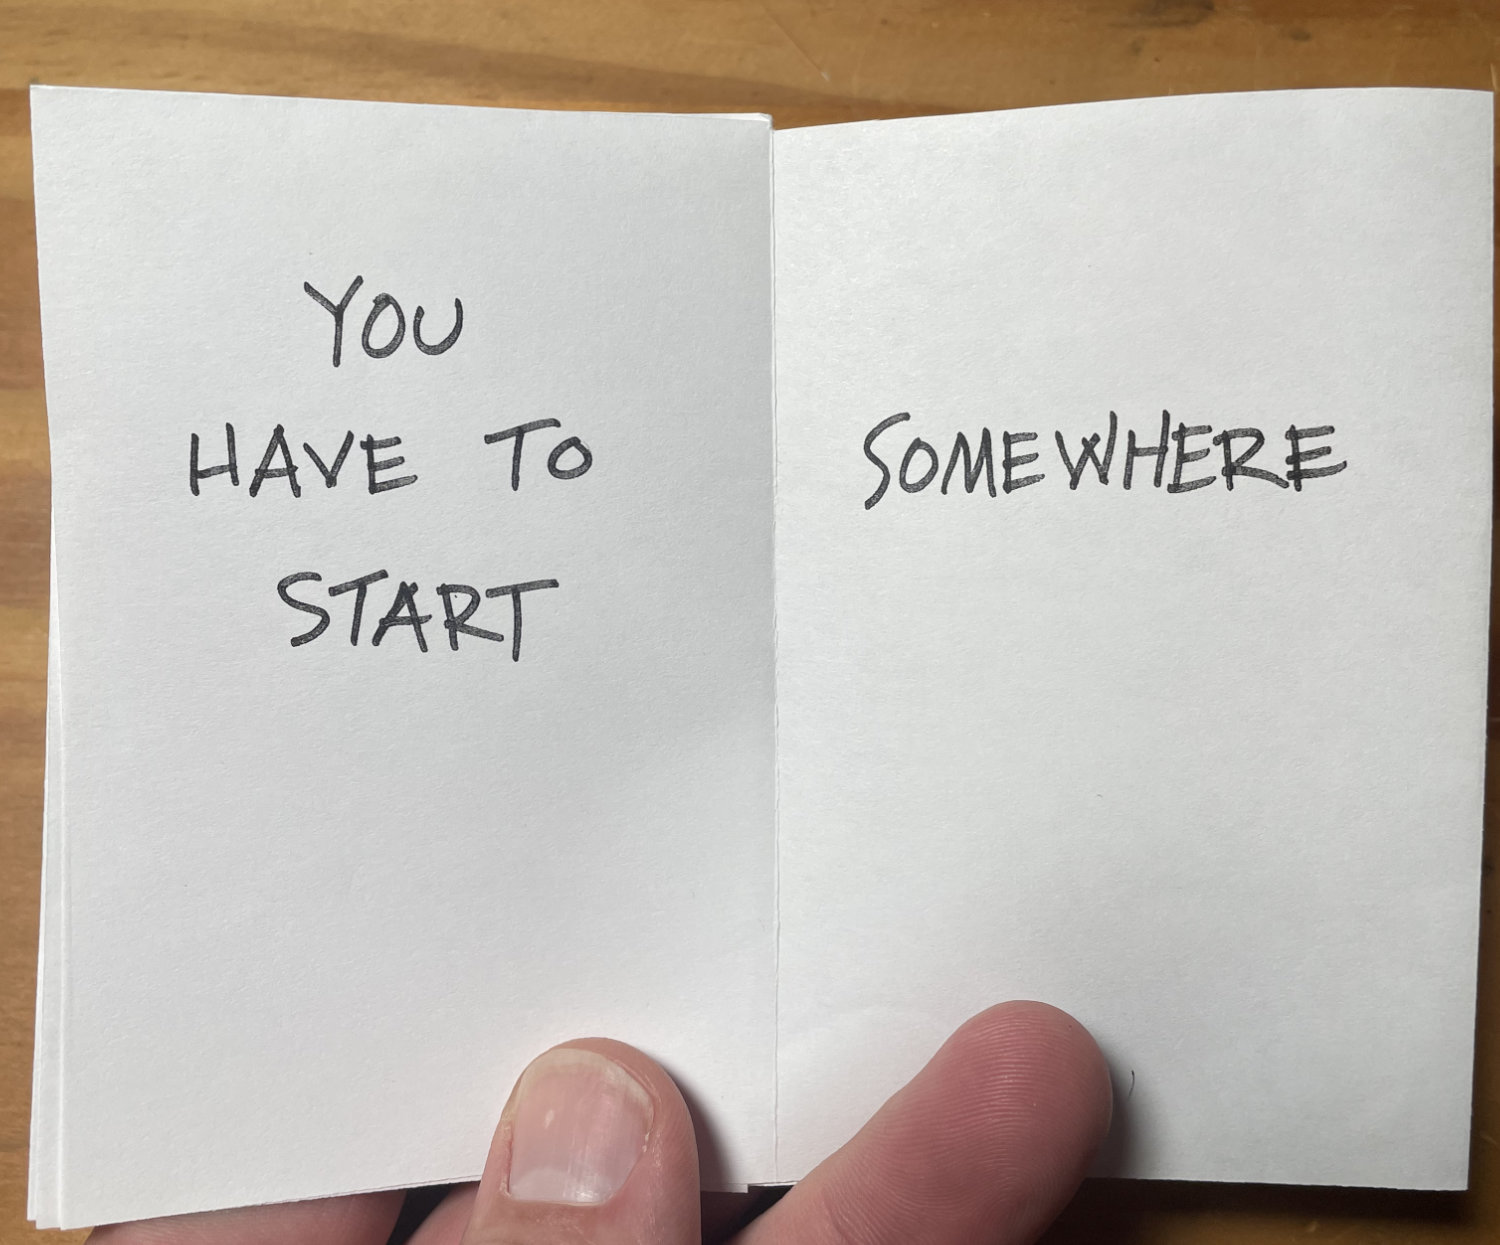 YOU
HAVE TO
START
SOMEWHERE